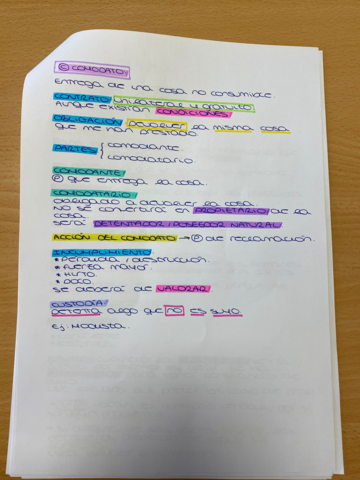 © COMODATO:
ENTREGA DE UNA COSA NO CONSUMIBLE.
CONTRATO UNILATERAL Y GRATUITO.
AUNQUE EXISTIRÁN CONDICIONES
OBLIGACIÓN DEVOLVER LA MISMA COSA
QUE ME HAN PRESTADO
PARTES { COMODANTE.
COMODATARIO.
COMODANTE:
Ⓟ QUE ENTREGA LA COSA.
COMODATARIO:
OBLIGADO A DEVOLVER LA COSA.
NO SE CONVERTIRÁ EN PROPIETARIO DE LA
COSA.
SERÁ DETENTADOR/POSEEDOR NATURAL
ACCIÓN DEL COMODATO → Ⓟ DE RECLAMACIÓN.
INCUMPLIMIENTO
* PÉRDIDA / DESTRUCCIÓN.
* FUERZA MAYOR.
* HURTO.
* DOLO.
SE DEBERÁ DE VALORAR
CUSTODIA:
DETENTA ALGO QUE NO ES SUYO
EJ: MODISTA.